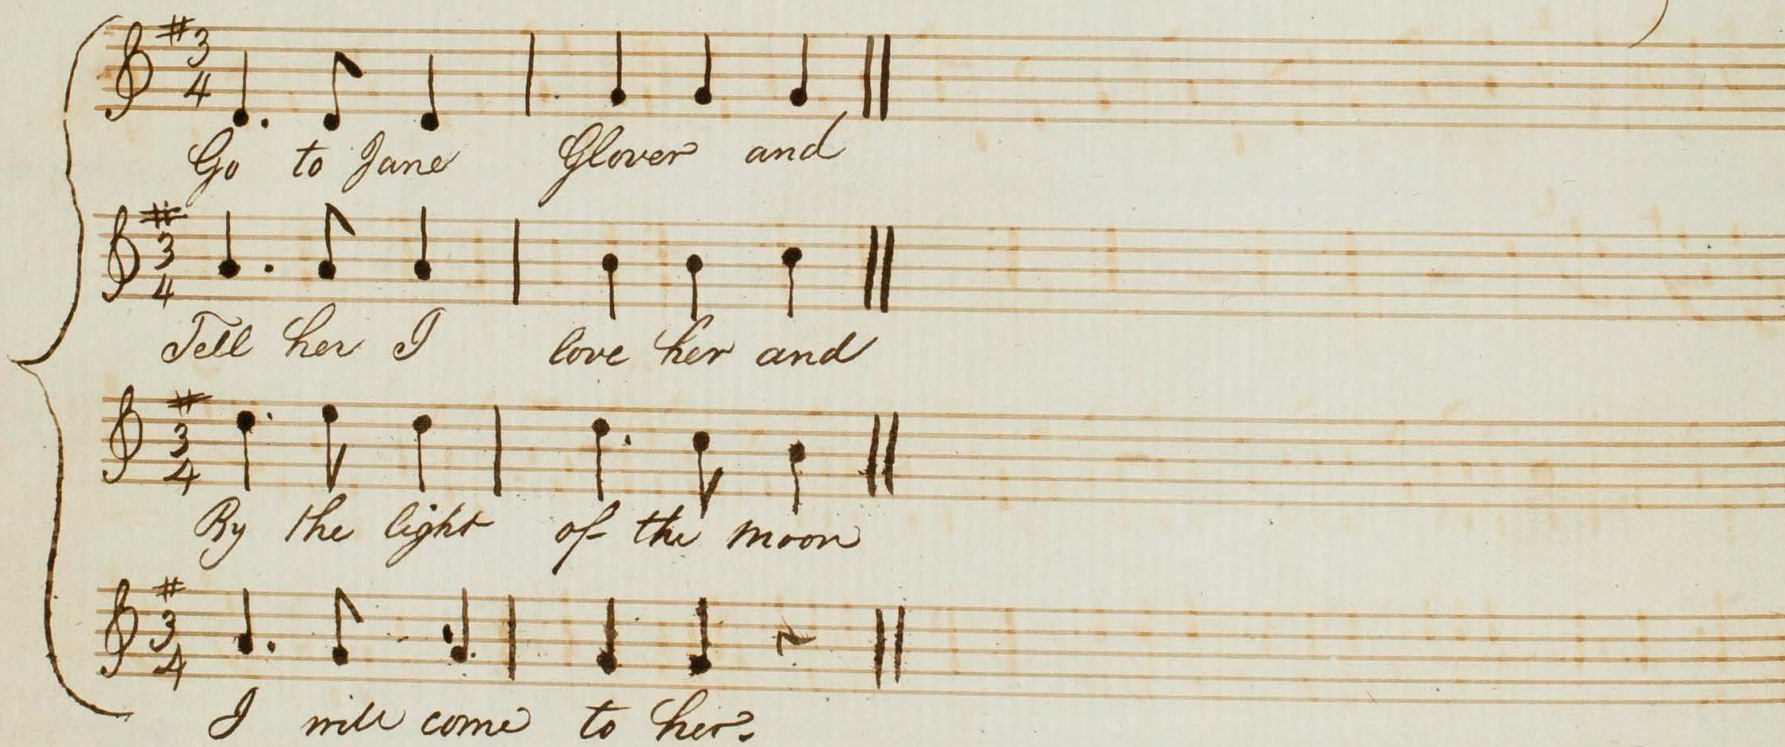 Go to Jane Glover and
Tell her I love her and
By the light of the moon
I will come to her.